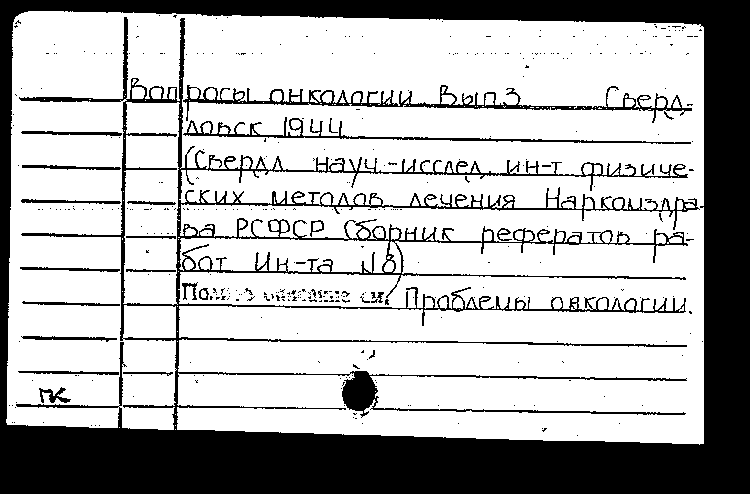 Вопросы онкологии Вып.3 Сверд-
ловск, 1944
(Свердл. науч.-исслед. ин-т физиче-
ских методов лечения Наркомздра-
ва РСФСР Сборник рефератов ра-
бот Ин-та №8)
Полное описание см. Проблемы онкологии.
ПК